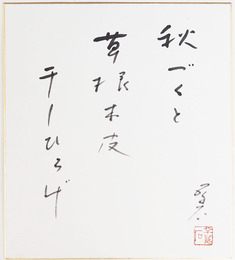 秋づくと
草根木皮
干しひろげ